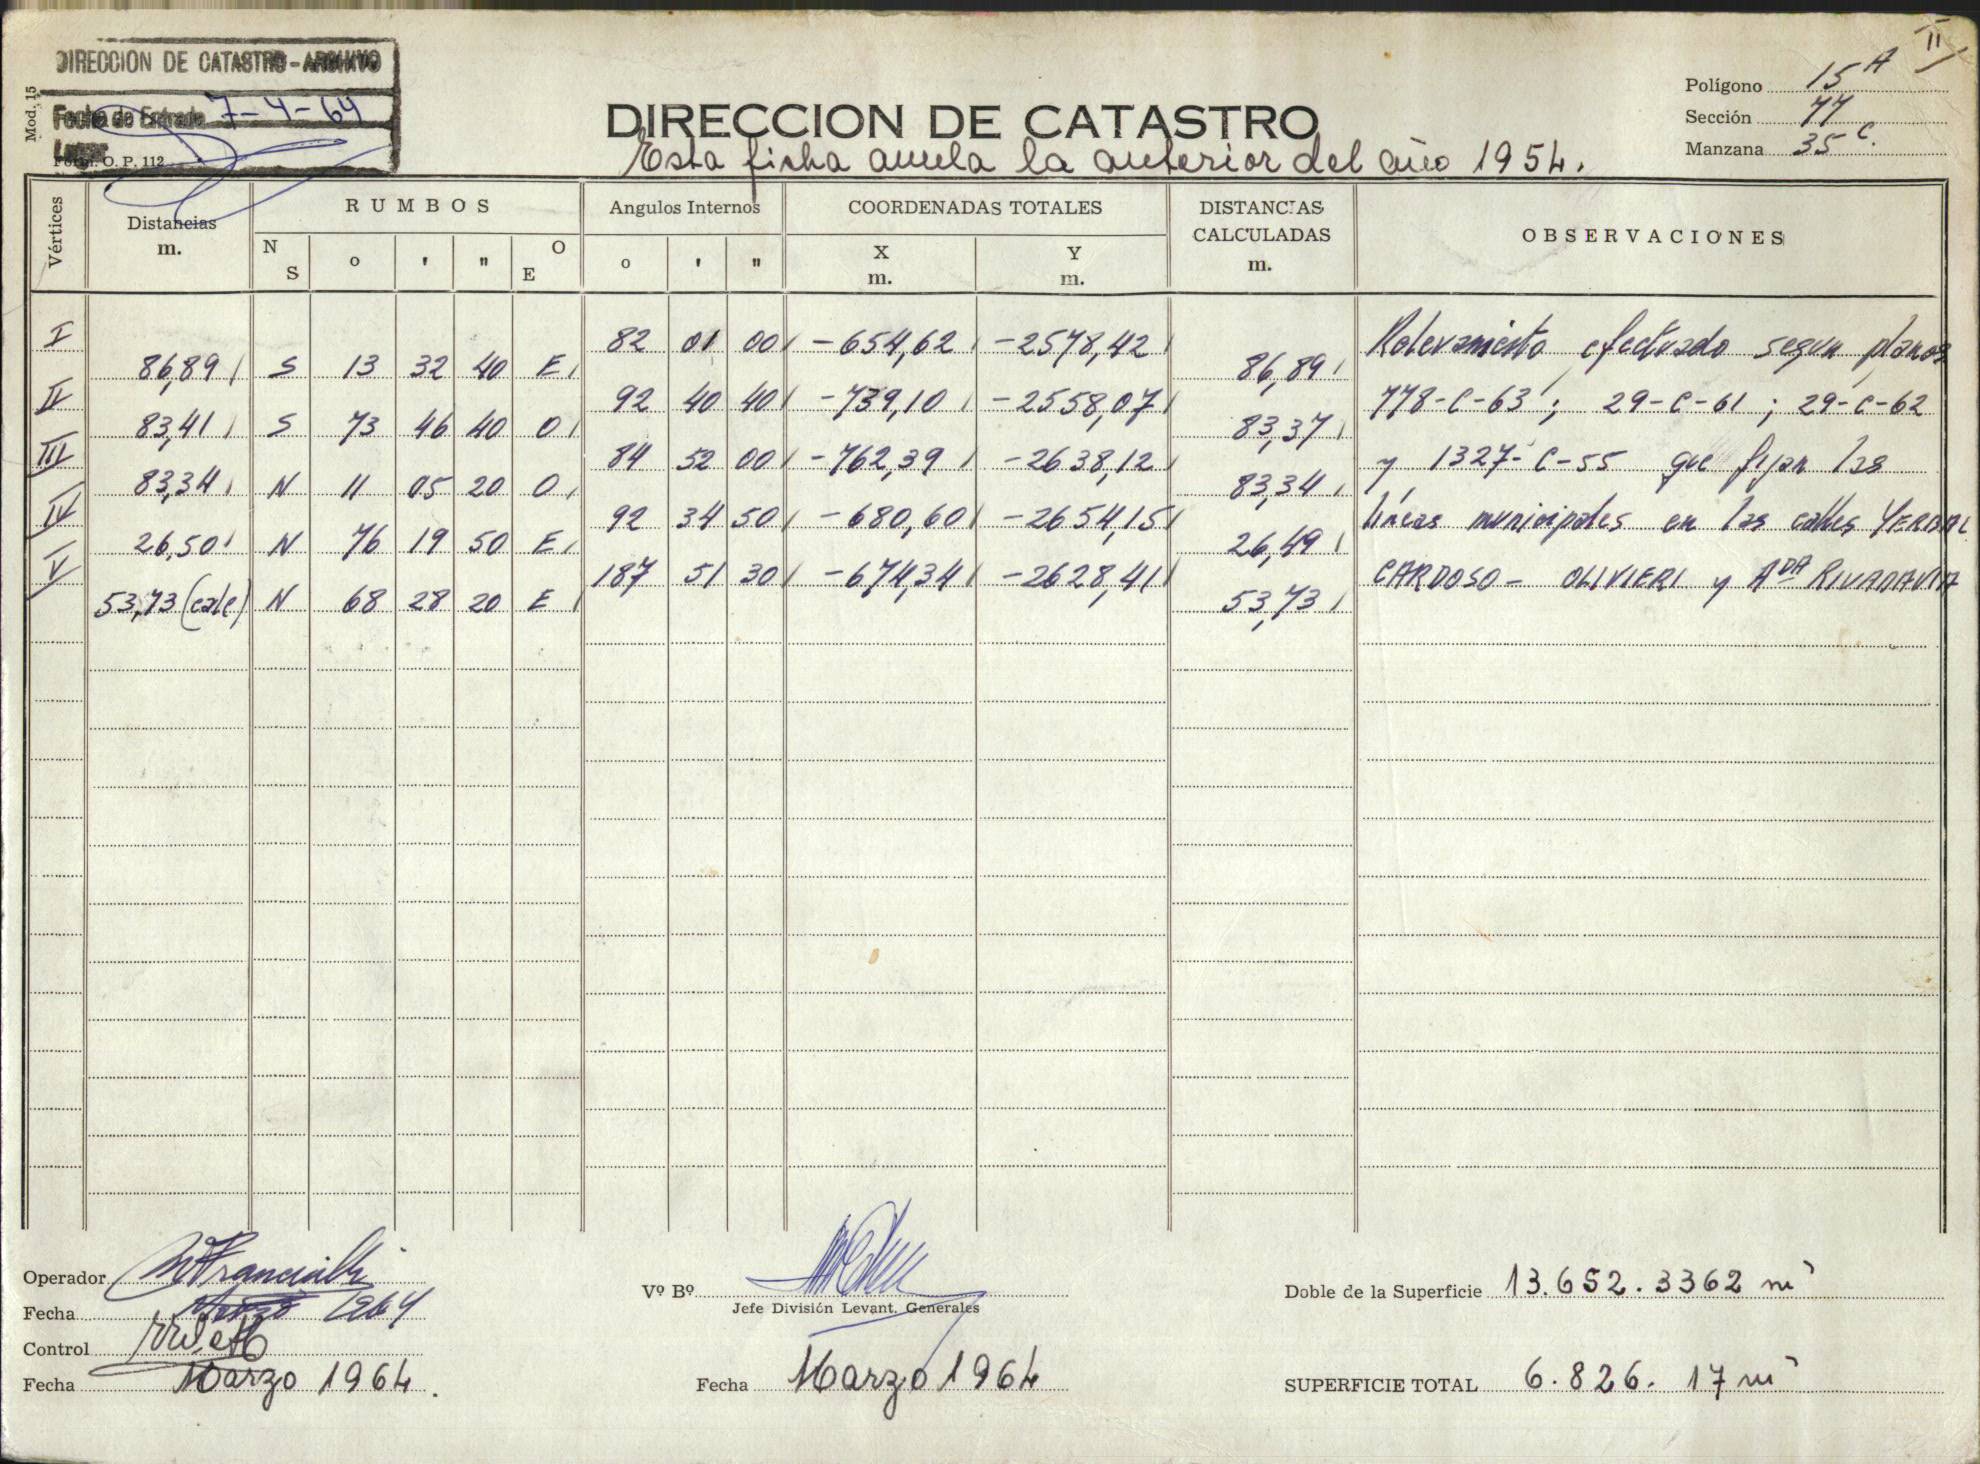 II
DIRECCION DE CATASTRO - ARCHIVO
Mod. 15
Fecha de Entrada 7-4-64
Form. O. P. 112
DIRECCION DE CATASTRO
Esta ficha anula la anterior del año 1954.
Polígono 15 A
Sección 77
Manzana 35 C.
Vértices
Distancias m.
RUMBOS
N S ° ' " O E
Angulos Internos
° ' "
COORDENADAS TOTALES
X m. Y m.
DISTANCIAS CALCULADAS m.
OBSERVACIONES
I 82 01 00 -654,62 -2578,42
86,89 S 13 32 40 E 86,89
II 92 40 40 -739,10 -2558,07
83,41 S 73 46 40 O 83,37
III 84 52 00 -762,39 -2638,12
83,34 N 11 05 20 O 83,34
IV 92 34 50 -680,60 -2654,15
26,50 N 76 19 50 E 26,49
V 187 51 30 -674,34 -2628,41
53,73 (calc) N 68 28 20 E 53,73
Relevamiento efectuado segun planos
778-C-63; 29-C-61; 29-C-62
y 1327-C-55 que fijan las
líneas municipales en las calles YERBAL
CARDOSO - OLIVIERI y ADA RIVADAVIA
Operador
Fecha Marzo 1964
Control
Fecha Marzo 1964.
Vº Bº
Jefe División Levant. Generales
Fecha Marzo 1964
Doble de la Superficie 13.652.3362 m²
SUPERFICIE TOTAL 6.826.17 m²